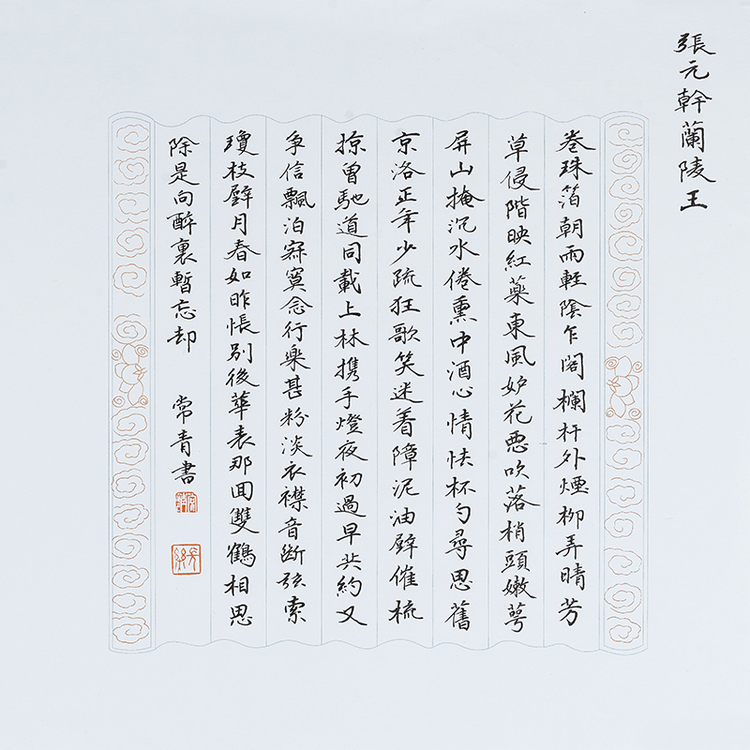 張元幹蘭陵王
卷珠箔朝雨輕陰乍閣欄杆外煙柳弄晴芳
草侵階映紅藥東風妒花惡吹落梢頭嫩萼
屏山掩沉水倦熏中酒心情怯杯勺尋思舊
京洛正年少疏狂歌笑迷着障泥油壁催梳
掠曾馳道同載上林携手燈夜初過早共約又
争信飄泊寂寞念行樂甚粉淡衣襟音斷弦索
瓊枝璧月春如昨悵別後華表那回雙鶴相思
除是向醉裏暫忘却 常青書